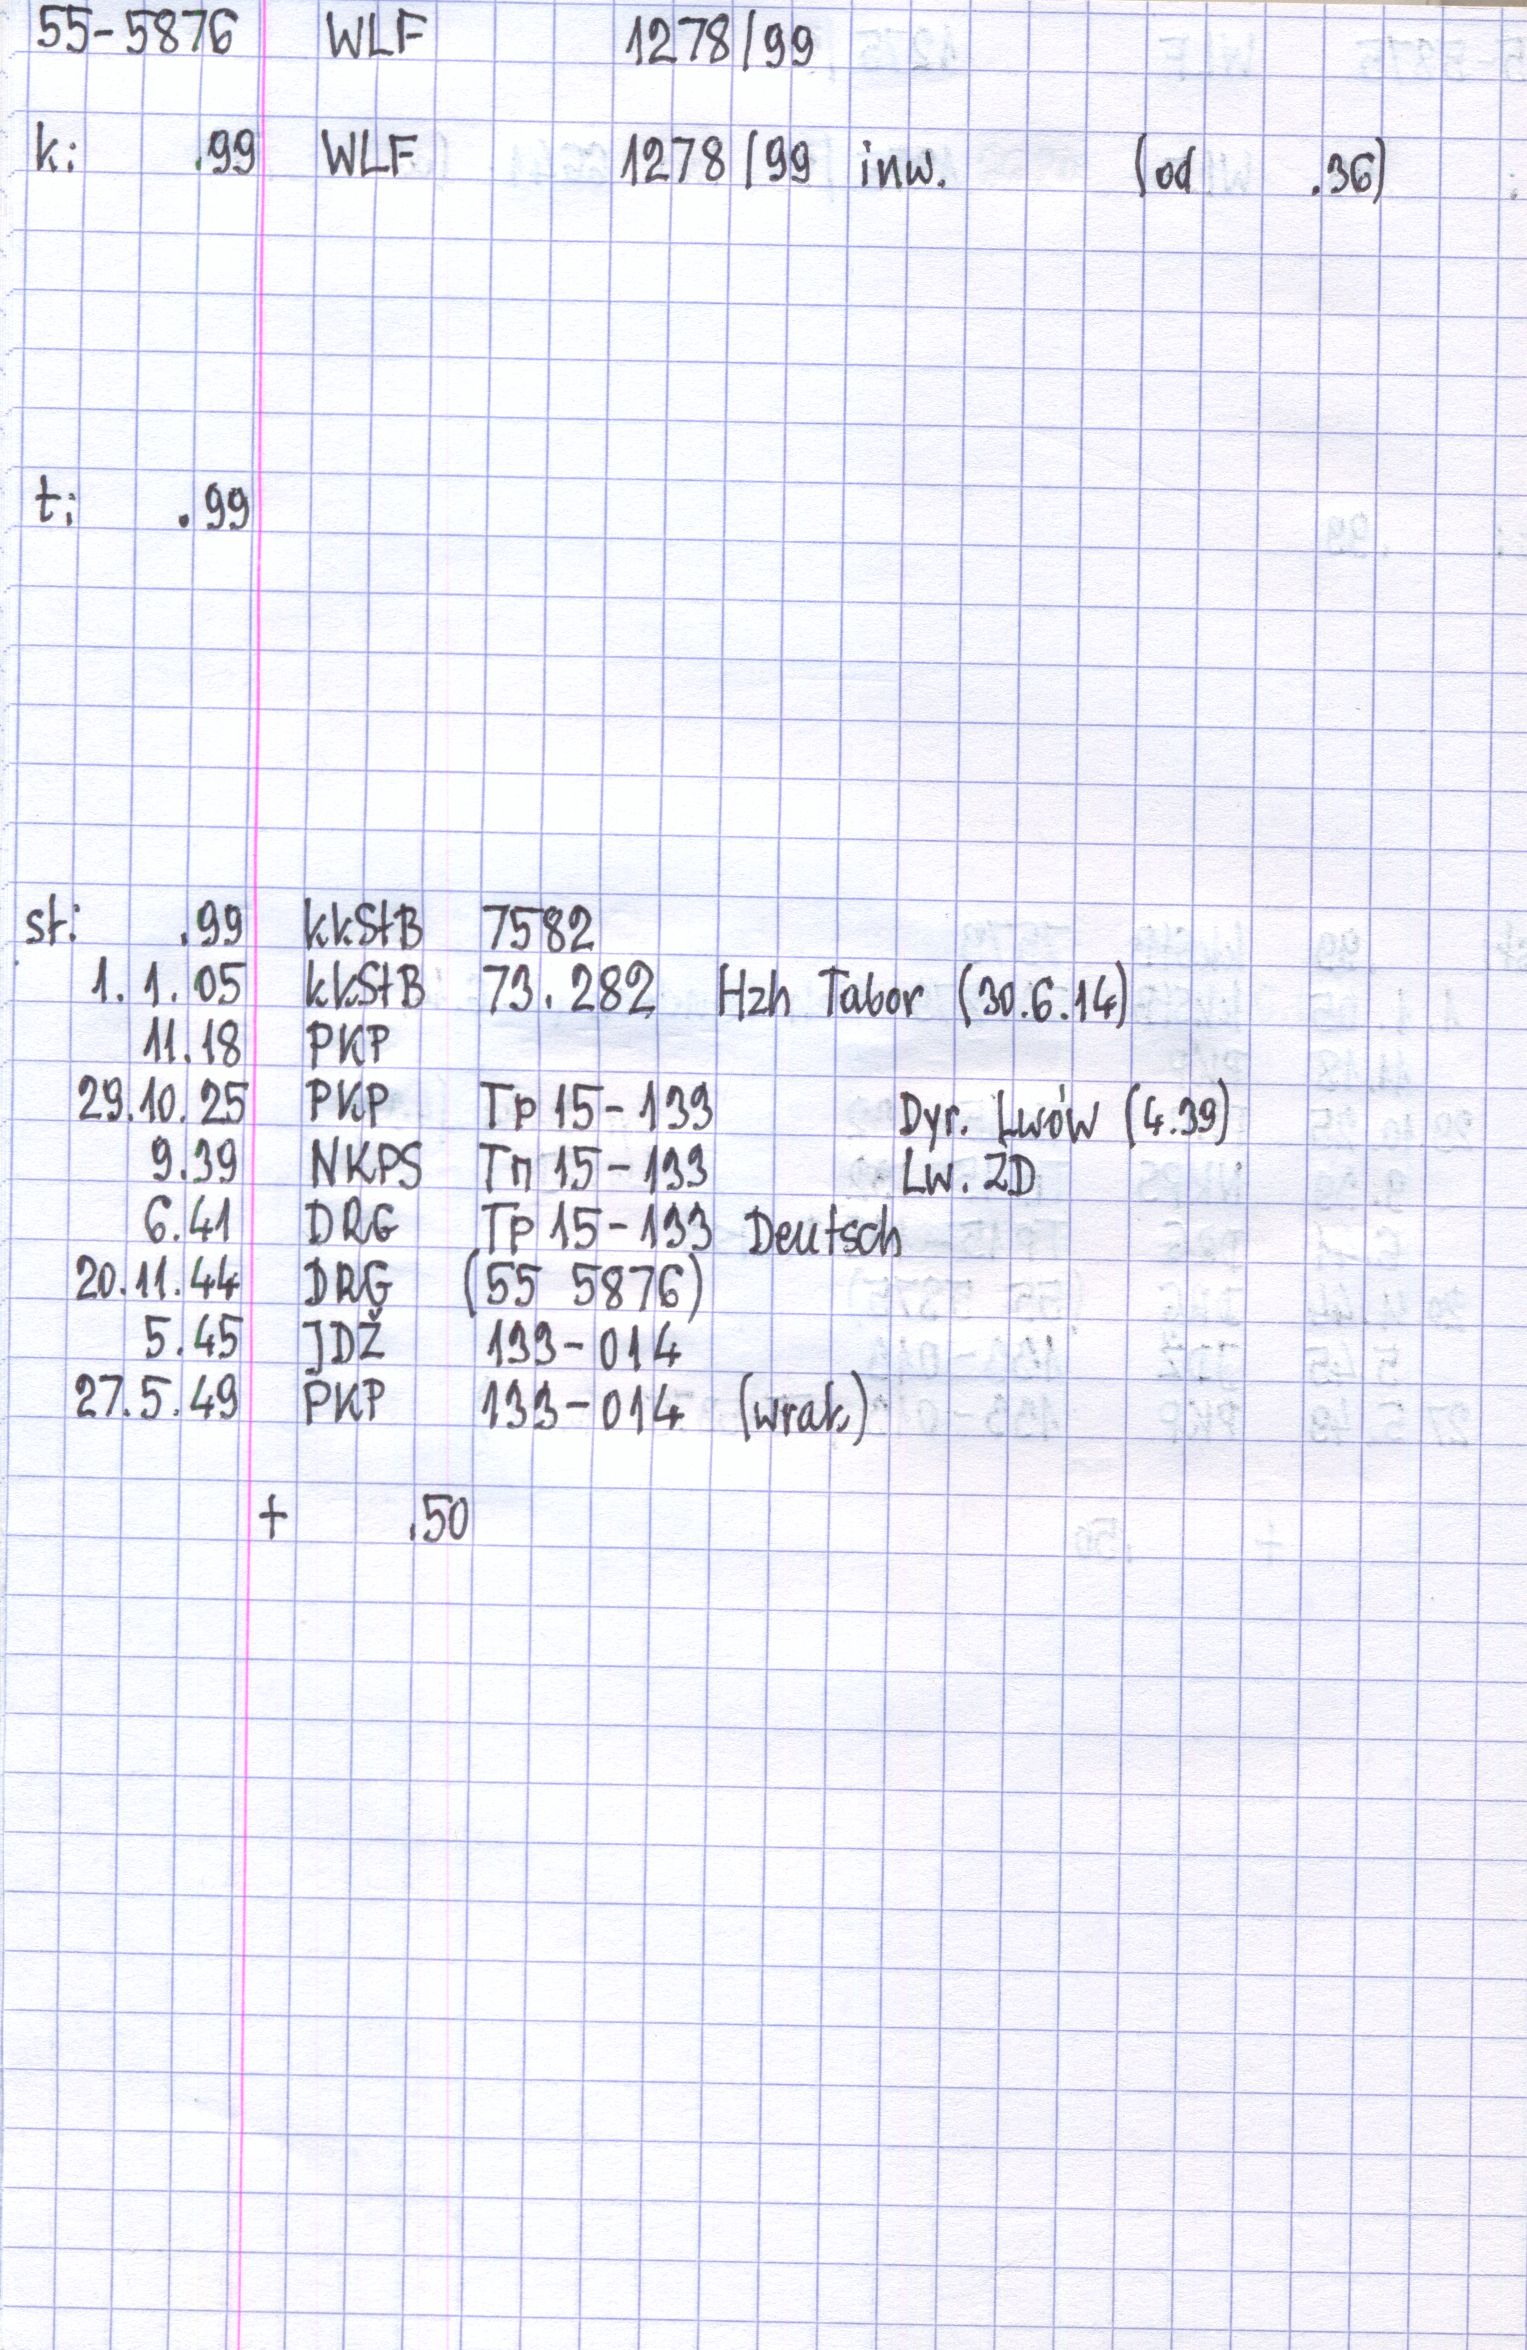 55-5876 WLF 1278/99
k: .99 WLF 1278/99 inw. (od .36)
t: .99
st: .99 kkStB 7582
1.1.05 kkStB 73.282 Hzh Tabor (30.6.14)
11.18 PKP
29.10.25 PKP Tp 15-133 Dyr. Lwów (4.39)
9.39 NKPS Тп 15-133 Lw. ŻD
6.41 DRG Tp 15-133 Deutsch
20.11.44 DRG (55 5876)
5.45 JDŽ 133-014
27.5.49 PKP 133-014 (wrak)
+ .50